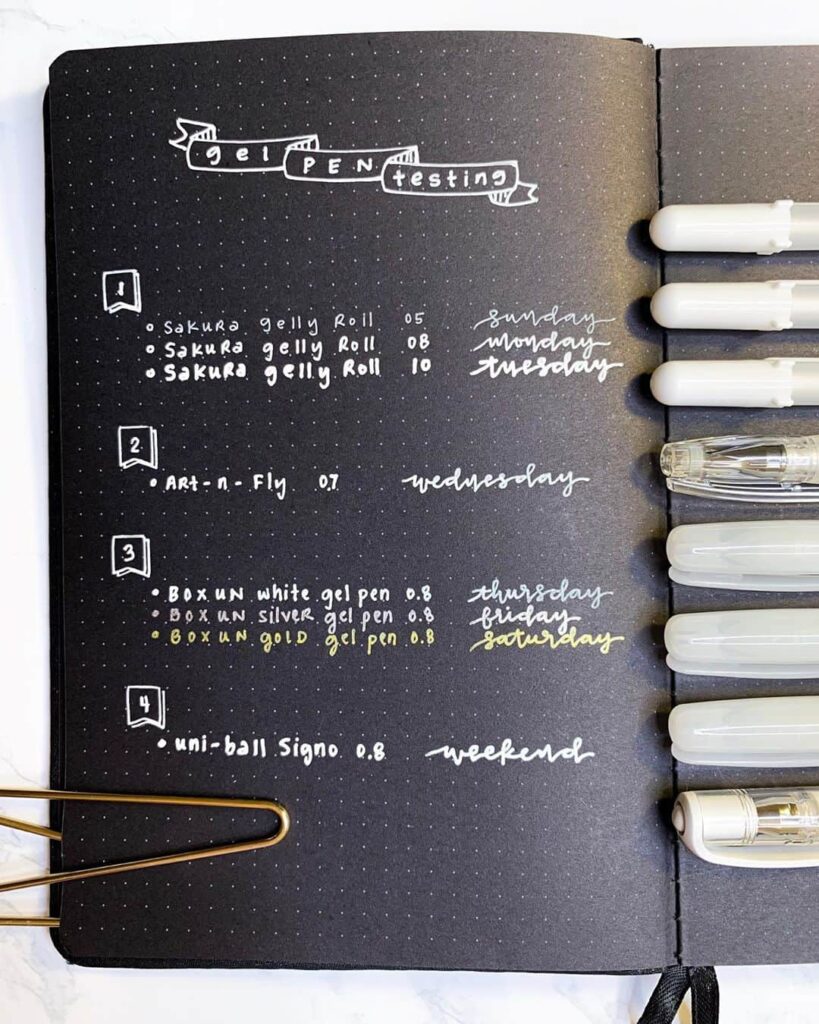 gel PEN testing
1
• SAKURA gelly Roll 05 sunday
• SAKURA gelly Roll 08 monday
• SAKURA gelly Roll 10 tuesday
2
• ART-n-Fly 0.7 wednesday
3
• BOXUN white gel pen 0.8 thursday
• BOXUN SILVER gel pen 0.8 friday
• BOXUN GOLD gel pen 0.8 saturday
4
• uni-ball Signo 0.8 weekend